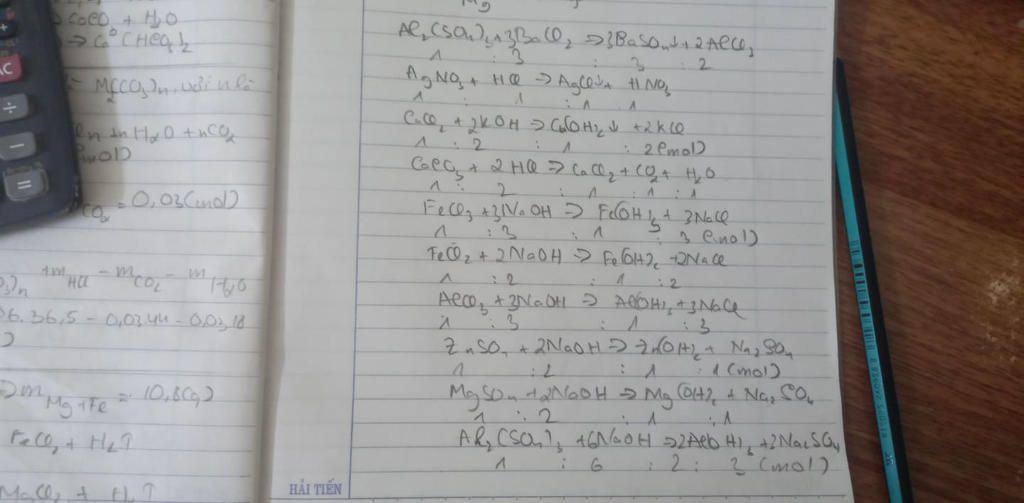 CaCO₃ + H₂O
M₂(CO₃)n, với n là
H₂O + nCO₂
(mol)
CO₂ = 0,03(mol)
+ mHCl - mCO₂ - mH₂O
36,5 - 0,03.44 - 0,03.18
mMg+Fe = 10,8(g)
FeCl₂ + H₂↑
MgCl₂ + H₂↑
Mg
Al₂(SO₄)₃ + 3BaCl₂ => 3BaSO₄↓ + 2AlCl₃
1 : 3 : 3 : 2
AgNO₃ + HCl => AgCl↓ + HNO₃
1 : 1 : 1 1
CaCl₂ + 2KOH => Ca(OH)₂↓ + 2KCl
1 : 2 : 1 : 2(mol)
CaCO₃ + 2HCl => CaCl₂ + CO₂ + H₂O
1 : 2 : 1 : 1 : 1
FeCl₃ + 3NaOH => Fe(OH)₃ + 3NaCl
1 : 3 : 1 : 3 (mol)
FeCl₂ + 2NaOH => Fe(OH)₂ + 2NaCl
1 : 2 : 1 : 2
AlCl₃ + 3NaOH => Al(OH)₃ + 3NaCl
1 : 3 : 1 : 3
ZnSO₄ + 2NaOH => Zn(OH)₂ + Na₂SO₄
1 : 2 : 1 : 1(mol)
MgSO₄ + 2NaOH => Mg(OH)₂ + Na₂SO₄
1 : 2 : 1 : 1
Al₂(SO₄)₃ + 6NaOH => 2Al(OH)₃ + 3Na₂SO₄
1 : 6 : 2 : 3 (mol)
HẢI TIẾN